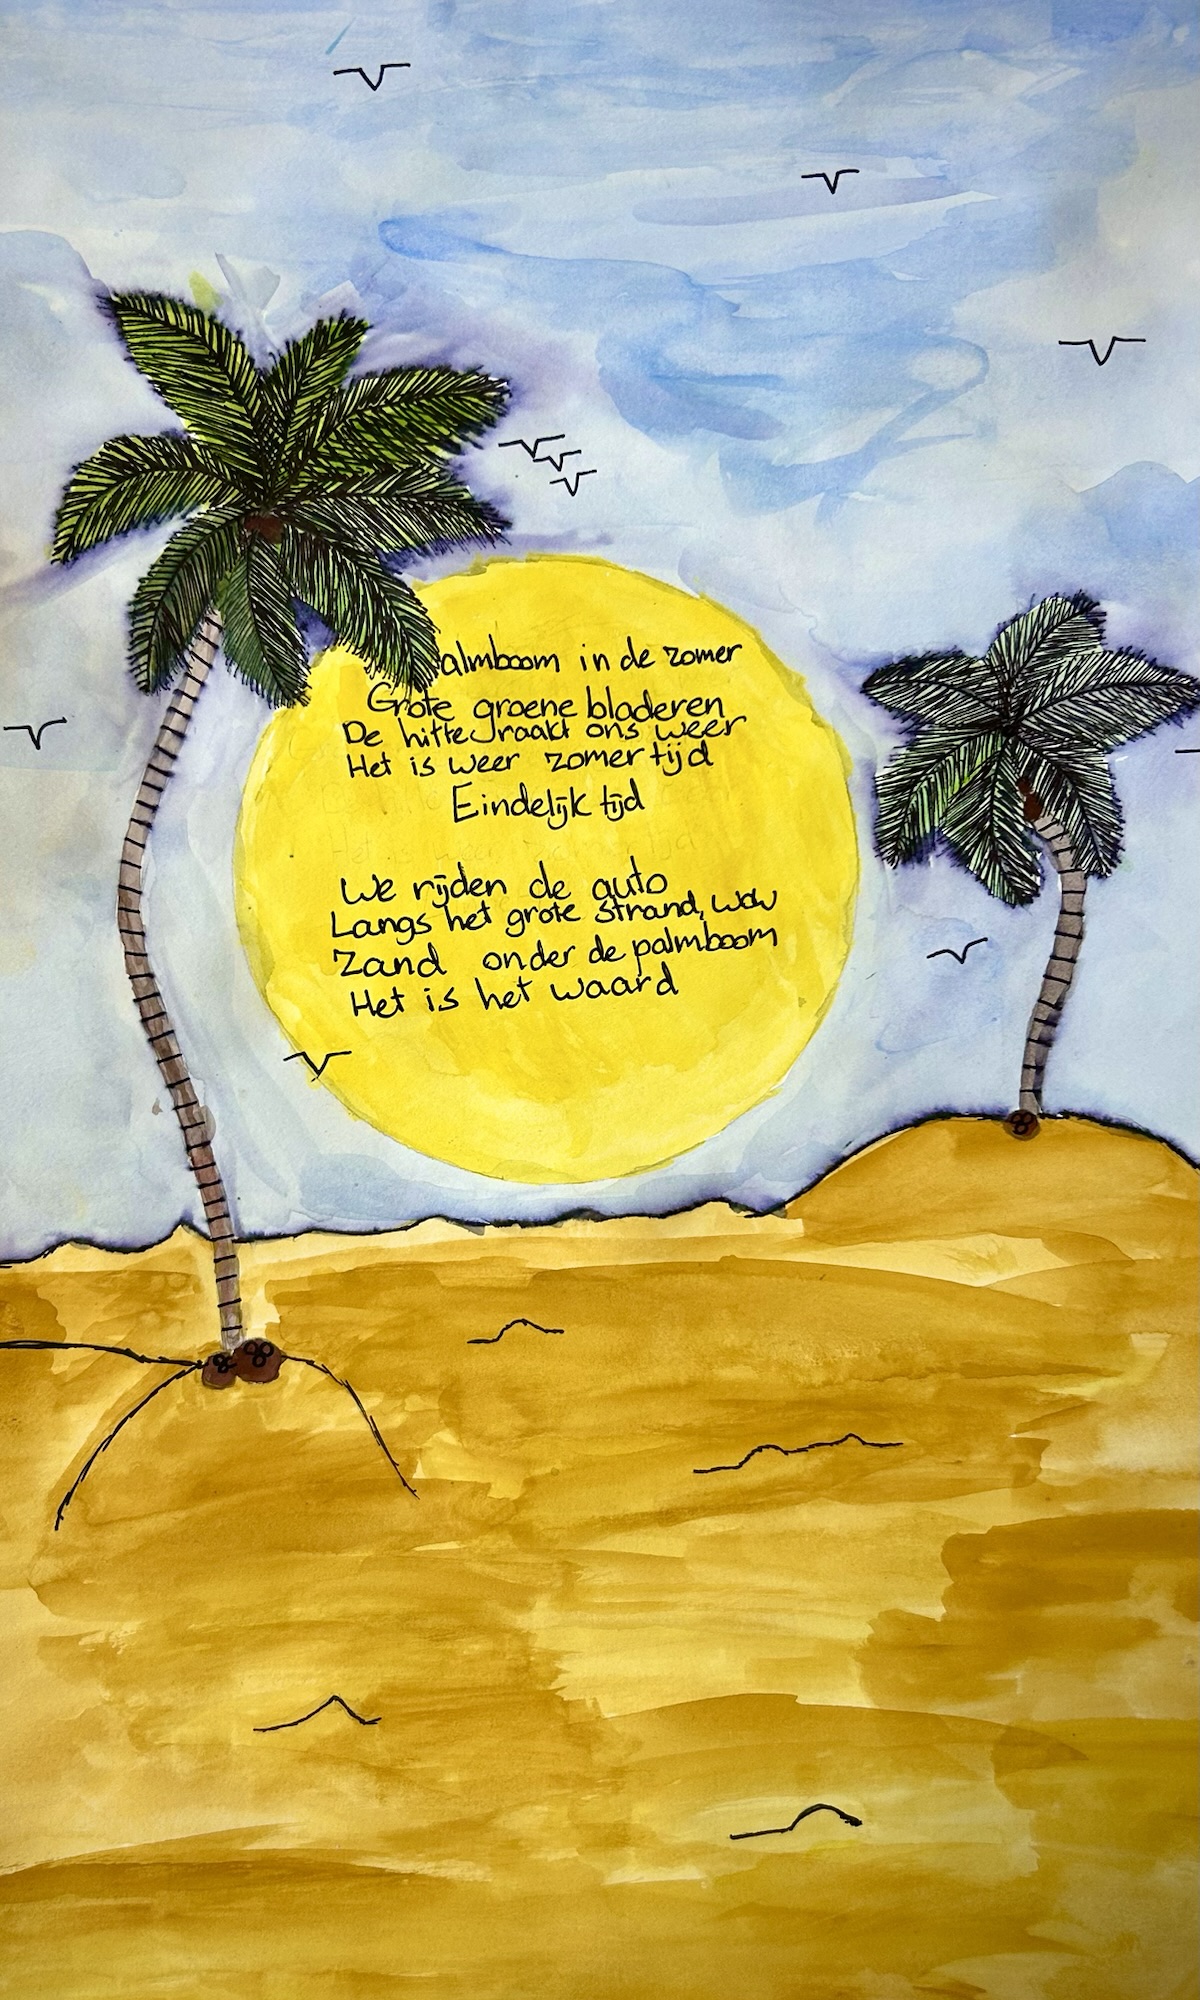 almboom in de zomer
Grote groene bladeren
De hitte raakt ons weer
Het is weer zomertijd
Eindelijk tijd
We rijden de auto
Langs het grote strand, wow
Zand onder de palmboom
Het is het waard